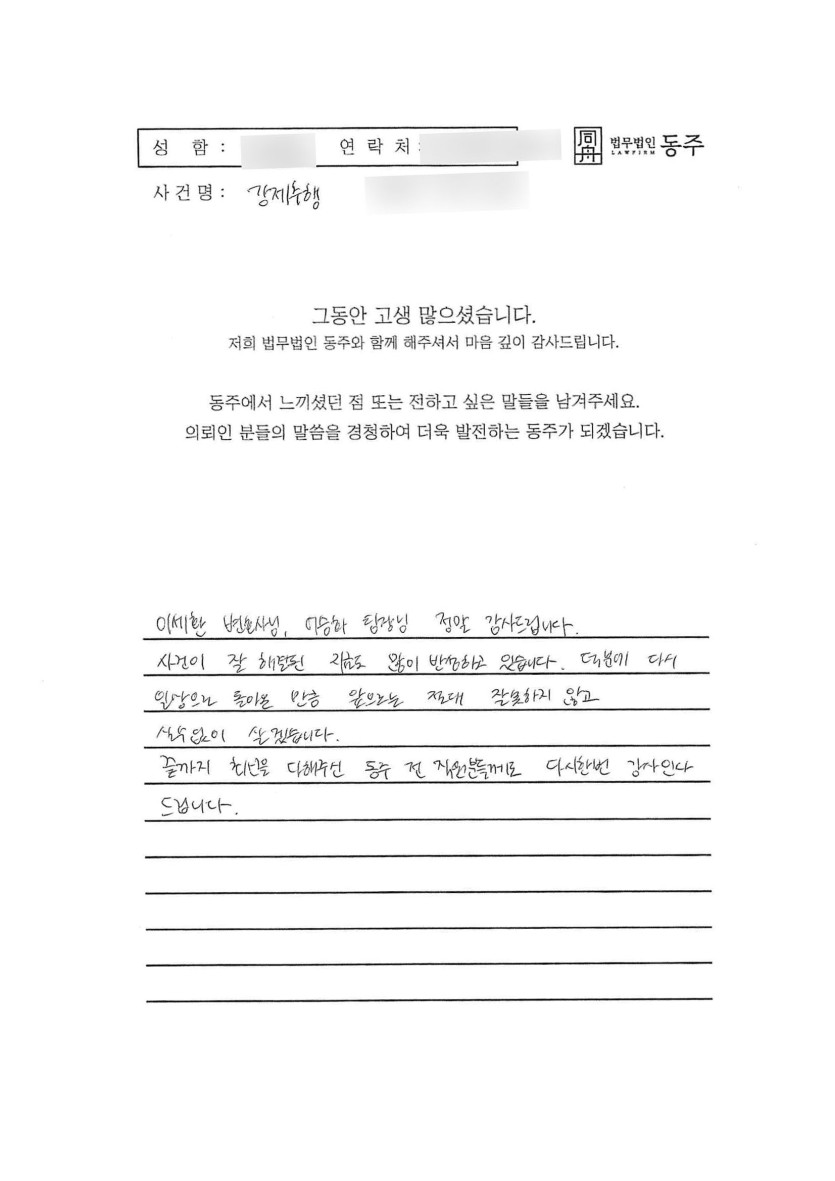 성 함 : 연 락 처 :
同舟 법무법인 동주
LAWFIRM
사 건 명 : 강제추행
그동안 고생 많으셨습니다.
저희 법무법인 동주와 함께 해주셔서 마음 깊이 감사드립니다.
동주에서 느끼셨던 점 또는 전하고 싶은 말들을 남겨주세요.
의뢰인 분들의 말씀을 경청하여 더욱 발전하는 동주가 되겠습니다.
이세환 변호사님, 이승하 팀장님 정말 감사드립니다.
사건이 잘 해결된 지금도 많이 반성하고 있습니다. 덕분에 다시
일상으로 돌아온 만큼 앞으로는 절대 잘못하지 않고
실수없이 살겠습니다.
끝까지 최선을 다해주신 동주 전 직원분들께도 다시한번 감사인사
드립니다.